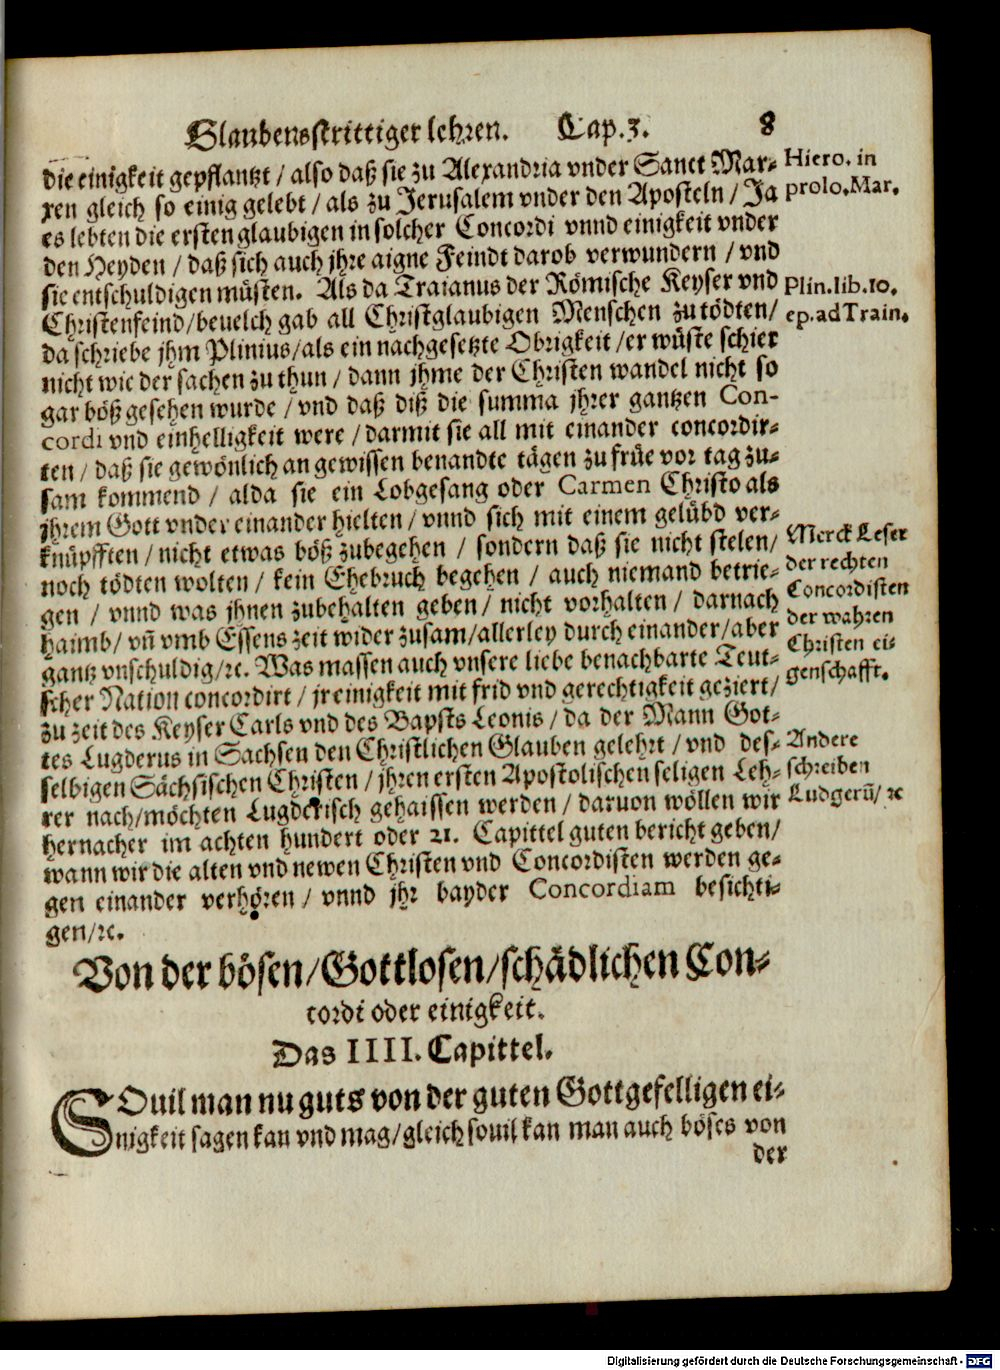 Glaubensstrittiger lehren. Cap.3. 8
die einigkeit gepflantzt / also daß sie zu Alexandria vnder Sanct Mar-
xen gleich so einig gelebt / als zu Jerusalem vnder den Aposteln / Ja
es lebten die ersten glaubigen in solcher Concordi vnnd einigkeit vnder
den Heyden / daß sich auch jhre aigne Feindt darob verwundern / vnd
sie entschuldigen müsten. Als da Traianus der Römische Keyser vnd
Christenfeind/beuelch gab all Christglaubigen Menschen zu tödten/
da schriebe jhm Plinius/als ein nachgesetzte Obrigkeit/er wüste schier
nicht wie der sachen zu thun / dann jhme der Christen wandel nicht so
gar böß gesehen wurde / vnd daß diß die summa jhrer gantzen Con-
cordi vnd einhelligkeit were / darmit sie all mit einander concordir-
ten / daß sie gewönlich an gewissen benandte tägen zu früe vor tag zu-
sam kommend / alda sie ein Lobgesang oder Carmen Christo als
jhrem Gott vnder einander hielten / vnnd sich mit einem gelübd ver-
knüpfften / nicht etwas böß zubegehen / sondern daß sie nicht stelen/
noch tödten wolten / kein Ehebruch begehen / auch niemand betrie-
gen / vnnd was jhnen zubehalten geben / nicht vorhalten / darnach
haimb/ vñ vmb Essens zeit wider zusam/allerley durch einander/aber
gantz vnschuldig/ꝛc. Was massen auch vnsere liebe benachbarte Teut-
scher Nation concordirt / jr einigkeit mit frid vnd gerechtigkeit geziert/
zu zeit des Keyser Carls vnd des Bapsts Leonis / da der Mann Got-
tes Lugderus in Sachsen den Christlichen Glauben gelehrt / vnd des-
selbigen Sächsischen Christen / jhren ersten Apostolischen seligen Leh-
rer nach/möchten Lugderisch gehaissen werden / daruon wöllen wir
hernacher im achten hundert oder 21. Capittel guten bericht geben/
wann wir die alten vnd newen Christen vnd Concordisten werden ge-
gen einander verhören / vnnd jhr bayder Concordiam besichti-
gen/ꝛc.
Hiero. in
prolo.Mar.
Plin.lib.10.
ep.ad Train.
Merck Leser
der rechten
Concordisten
der wahren
Christen ei-
genschafft.
Andere
schreiben
Ludgerũ/ ꝛc
Von der bösen/Gottlosen/schädlichen Con-
cordi oder einigkeit.
Das IIII. Capittel.
SOuil man nu guts von der guten Gottgefelligen ei-
nigkeit sagen kan vnd mag/gleich souil kan man auch böses von
der
Digitalisierung gefördert durch die Deutsche Forschungsgemeinschaft - DFG